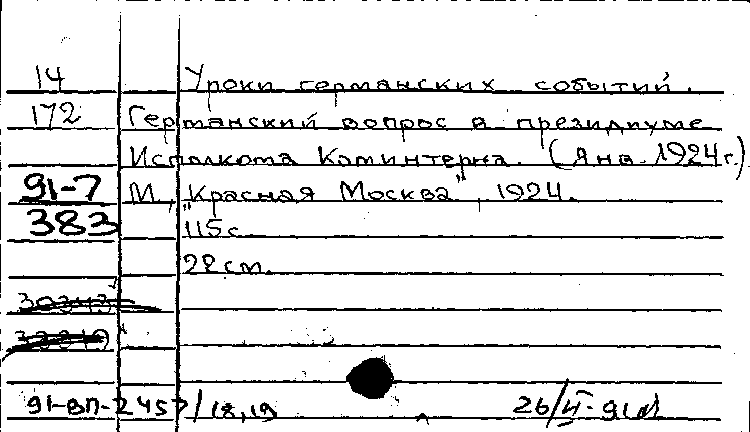 14 Уроки германских событий.
172 Германский вопрос в президиуме
Исполкома Коминтерна. (Янв. 1924 г.)
91-7 М., "Красная Москва", 1924.
383 115 с.
22 см.
91-вп-2457/18,19 26/II-91